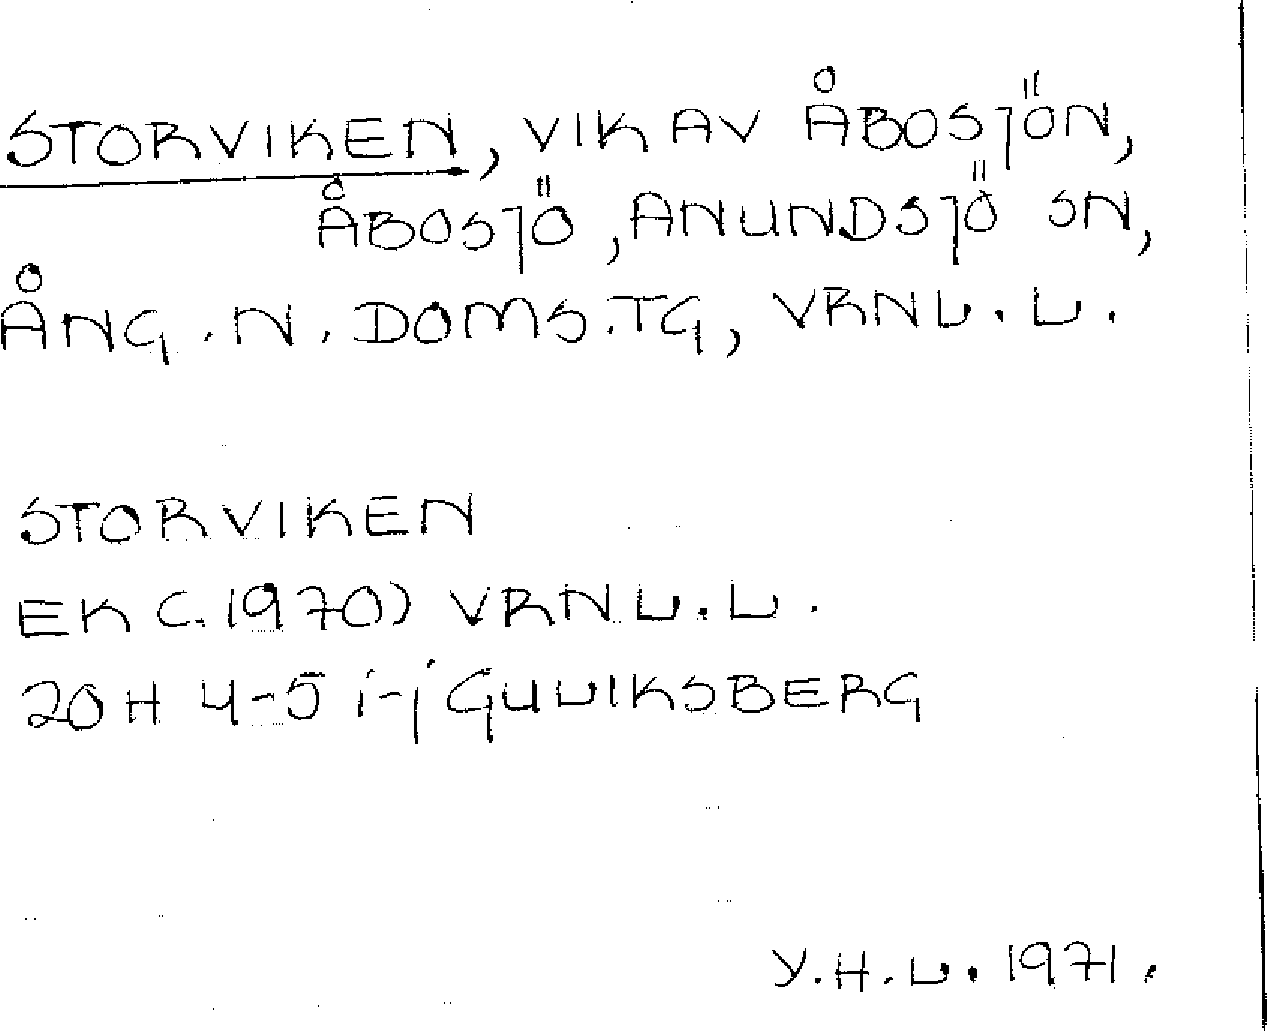 STORVIKEN, VIK AV ÅBOSJÖN,
ÅBOSJÖ, ANUNDSJÖ SN,
ÅNG. N. DOMS.TG, VRNL. L.
STORVIKEN
EK (.1970) VRNL. L.
20 H 4-5 i-j GULLIKSBERG
Y.H.L. 1971.